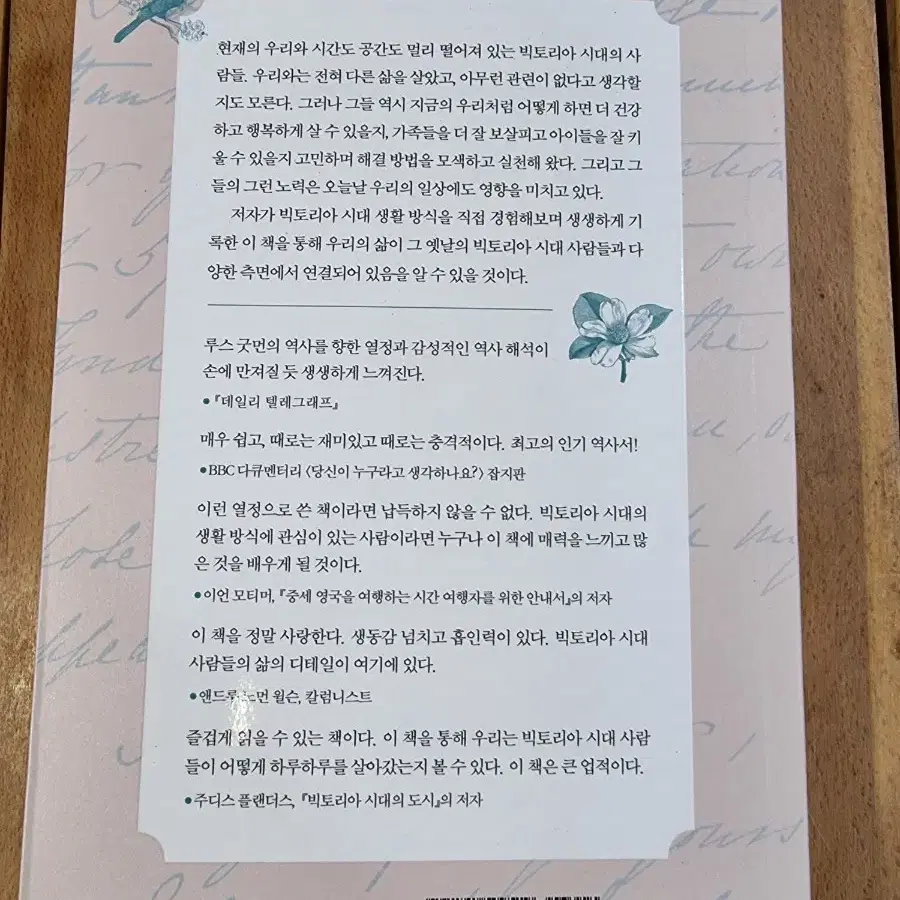 현재의 우리와 시간도 공간도 멀리 떨어져 있는 빅토리아 시대의 사
람들. 우리와는 전혀 다른 삶을 살았고, 아무런 관련이 없다고 생각할
지도 모른다. 그러나 그들 역시 지금의 우리처럼 어떻게 하면 더 건강
하고 행복하게 살 수 있을지, 가족들을 더 잘 보살피고 아이들을 잘 키
울 수 있을지 고민하며 해결 방법을 모색하고 실천해 왔다. 그리고 그
들의 그런 노력은 오늘날 우리의 일상에도 영향을 미치고 있다.
저자가 빅토리아 시대 생활 방식을 직접 경험해보며 생생하게 기
록한 이 책을 통해 우리의 삶이 그 옛날의 빅토리아 시대 사람들과 다
양한 측면에서 연결되어 있음을 알 수 있을 것이다.
루스 굿먼의 역사를 향한 열정과 감성적인 역사 해석이
손에 만져질 듯 생생하게 느껴진다.
•『데일리 텔레그래프』
매우 쉽고, 때로는 재미있고 때로는 충격적이다. 최고의 인기 역사서!
•BBC 다큐멘터리 〈당신이 누구라고 생각하나요?〉 잡지판
이런 열정으로 쓴 책이라면 납득하지 않을 수 없다. 빅토리아 시대의
생활 방식에 관심이 있는 사람이라면 누구나 이 책에 매력을 느끼고 많
은 것을 배우게 될 것이다.
•이언 모티머, 『중세 영국을 여행하는 시간 여행자를 위한 안내서』의 저자
이 책을 정말 사랑한다. 생동감 넘치고 흡인력이 있다. 빅토리아 시대
사람들의 삶의 디테일이 여기에 있다.
•앤드루 노먼 윌슨, 칼럼니스트
즐겁게 읽을 수 있는 책이다. 이 책을 통해 우리는 빅토리아 시대 사람
들이 어떻게 하루하루를 살아갔는지 볼 수 있다. 이 책은 큰 업적이다.
•주디스 플랜더스, 『빅토리아 시대의 도시』의 저자